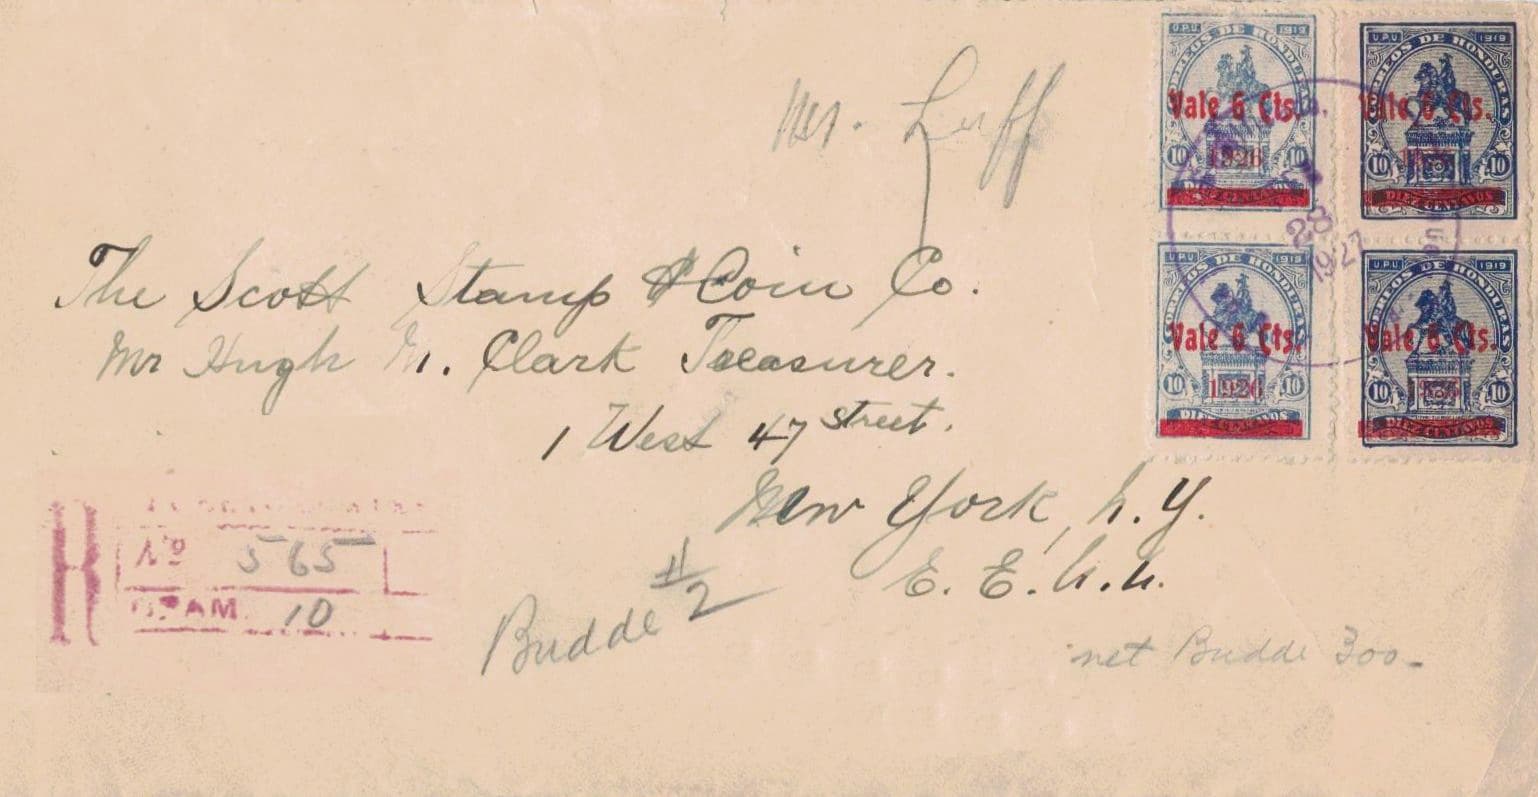 Mr. Luff
The Scott Stamp & Coin Co.
Mr Hugh M. Clark Treasurer.
1 West 47 street.
New York, N.Y.
E. E. U. U.
Budde #2
net Budde 300-
R
No 565
GRAM. 10
U.P.U 1919
CORREOS DE HONDURAS
Vale 6 Cts.
1926
10 10
DIEZ CENTAVOS
U.P.U 1919
CORREOS DE HONDURAS
Vale 6 Cts.
10 10
DIEZ CENTAVOS
U.P.U 1919
CORREOS DE HONDURAS
Vale 6 Cts.
1926
10 10
DIEZ CENTAVOS
U.P.U 1919
CORREOS DE HONDURAS
Vale 6 Cts.
10 10
DIEZ CENTAVOS
28
1927